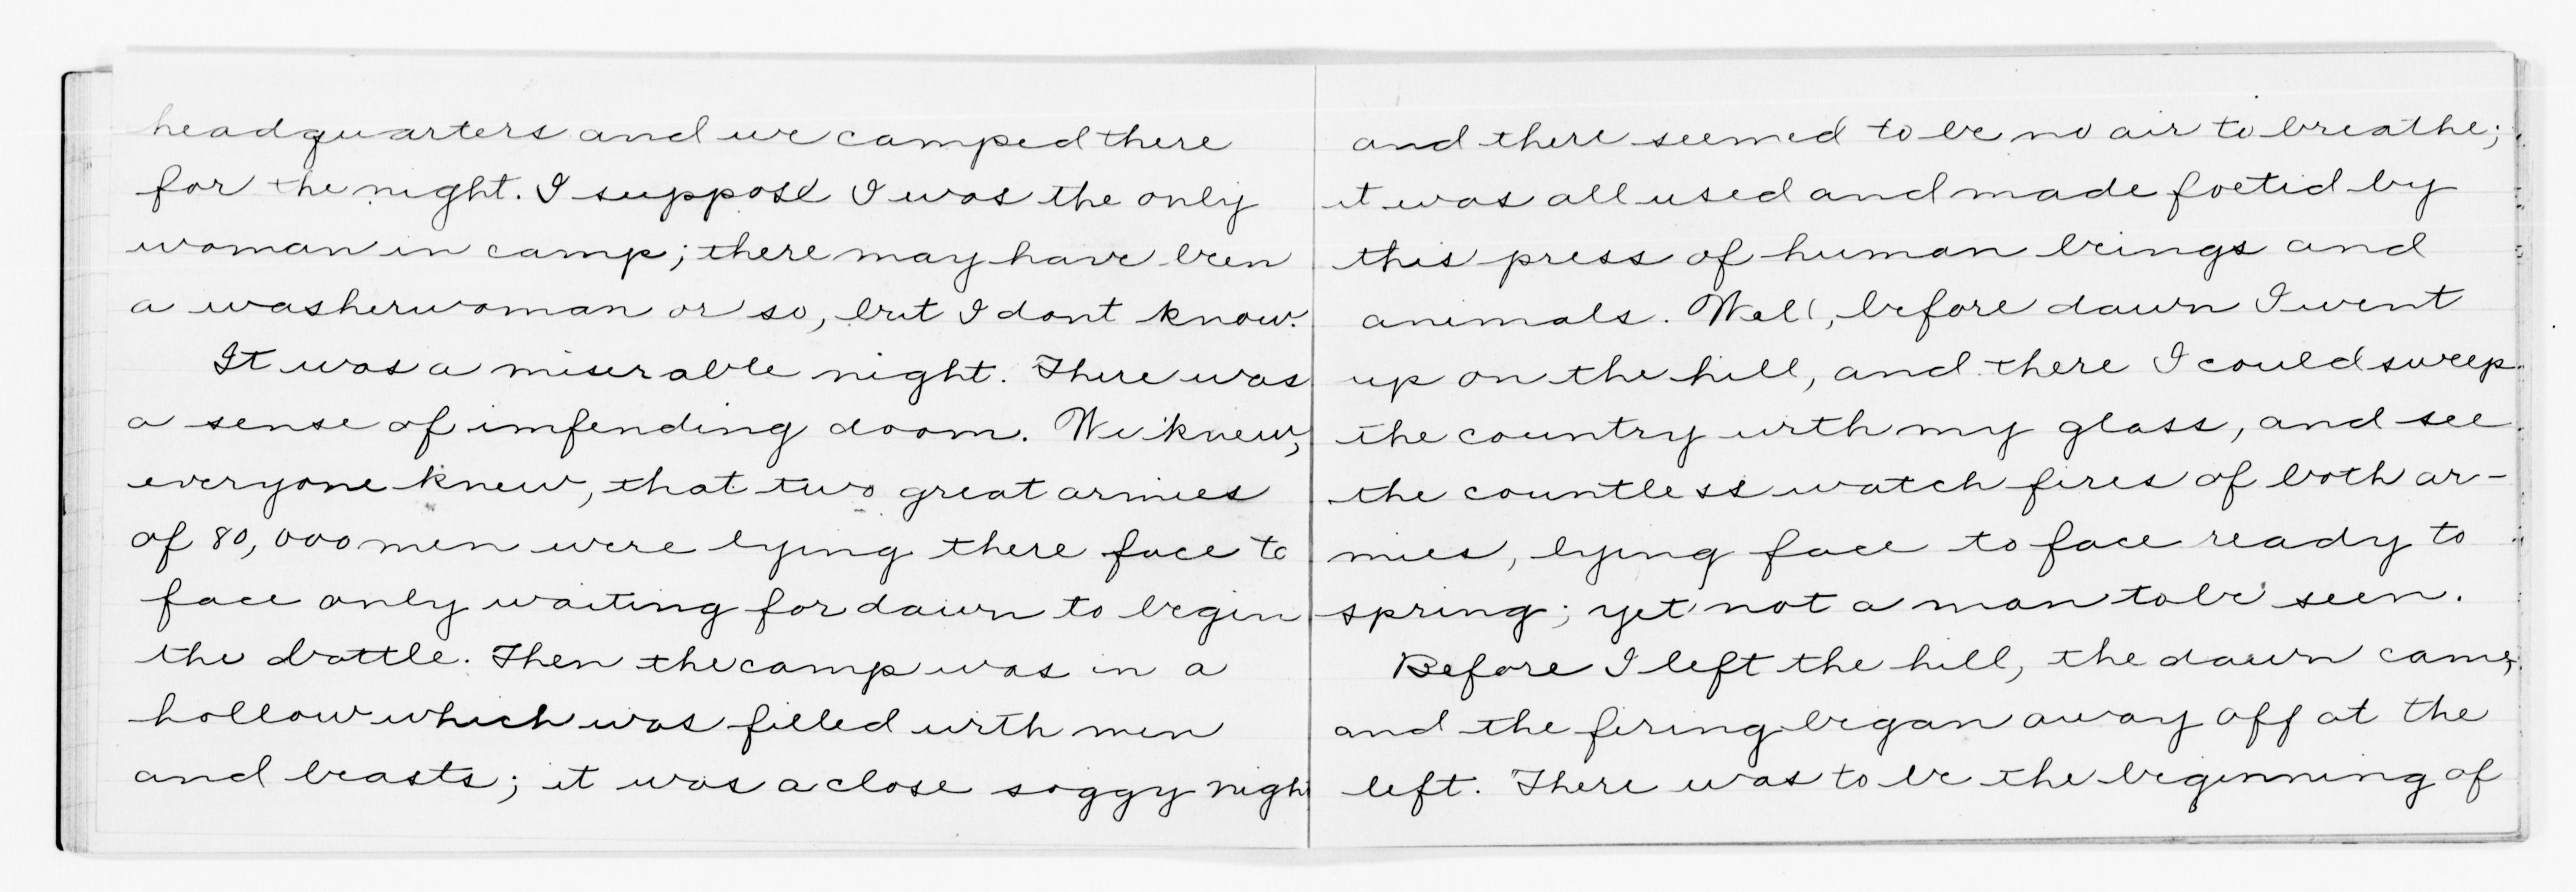 headquarters and we camped there
for the night. I suppose I was the only
woman in camp; there may have been
a washerwoman or so, but I dont know.
It was a miserable night. There was
a sense of imfending doom. We knew,
everyone knew, that two great armies
of 80,000 men were lying there face to
face only waiting for dawn to begin
the battle. Then the camp was in a
hollow which was filled with men
and beasts; it was a close soggy night
and there seemed to be no air to breathe;
it was all used and made foetid by
this press of human beings and
animals. Well, before dawn I went
up on the hill, and there I could sweep
the country with my glass, and see
the countless watch fires of both ar-
mies, lying face to face ready to
spring; yet not a man to be seen.
Before I left the hill, the dawn came,
and the firing began away off at the
left. There was to be the beginning of